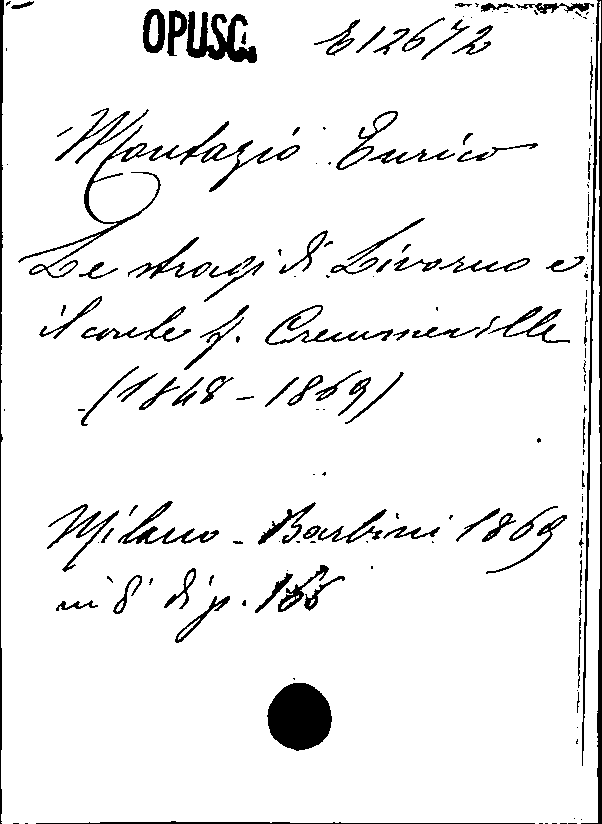 OPUSC. E 12672
Montazio Enrico
Le stragi di Livorno e
il conte f. Crenneville
(1848 - 1869)
Milano - Barbini 1869
in 8° di p.